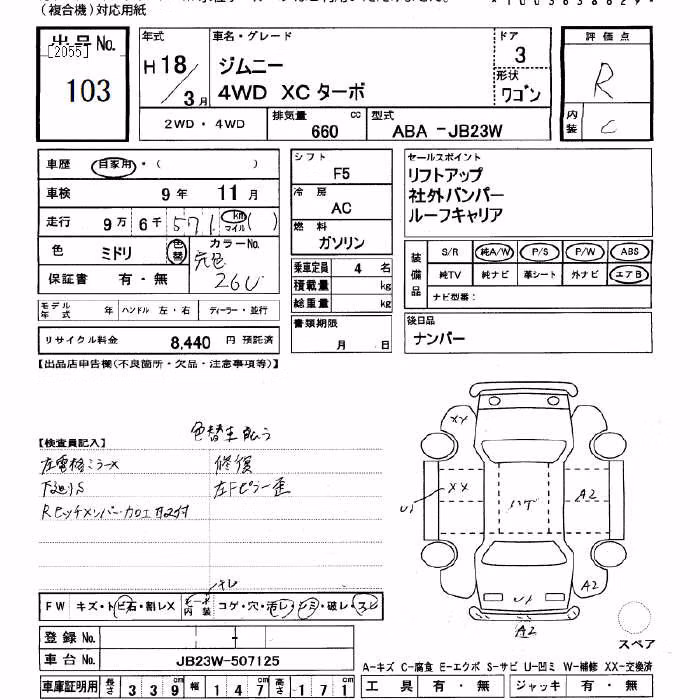 (複合機)対応用紙
*1003638629*
出品No.
[2055]
103
年式
H18/3月
車名・グレード
ジムニー
4WD XCターボ
ドア
3
形状
ワゴン
評価点
R
内装
C
2WD・4WD
排気量 660 cc
型式 ABA -JB23W
車歴 自家用・( )
車検 9年 11月
走行 9万 6千 571 km マイル ( )
色 ミドリ 色替 カラーNo.
元色 26U
保証書 有・無
モデル年式 年 ハンドル 左・右 ディーラー・並行
リサイクル料金 8,440 円 預託済
シフト F5
冷房 AC
燃料 ガソリン
乗車定員 4 名
積載量 kg
総重量 kg
書類期限 月 日
セールスポイント
リフトアップ
社外バンパー
ルーフキャリア
装備品
S/R 純A/W P/S P/W ABS
純TV 純ナビ 革シート 外ナビ エアB
ナビ型番:
後日品
ナンバー
【出品店申告欄(不良箇所・欠品・注意事項等)】
【検査員記入】
左電格ミラーX
下廻りS
修復
左Fピラー歪
XX
XX
U1
ハゲ
A2
A2
U1
A2
スペア
FW キズ・トビ石・割レX
内装 コゲ・穴・汚レ・シミ・破レ・スレ
キレ
登録No. -
車台No. JB23W-507125
車庫証明用 長さ 339cm 幅 147cm 高さ 171cm
A-キズ C-腐食 E-エクボ S-サビ U-凹ミ W-補修 XX-交換済
工具 有・無 ジャッキ 有・無